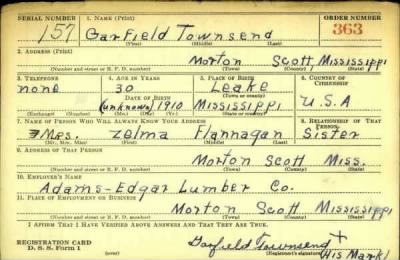 SERIAL NUMBER 1. NAME (Print) ORDER NUMBER
157 Garfield Townsend 363
(First) (Middle) (Last)
2. ADDRESS (Print)
Morton Scott Mississippi
(Number and street or R. F. D. number) (Town) (County) (State)
3. TELEPHONE 4. AGE IN YEARS 5. PLACE OF BIRTH 6. COUNTRY OF CITIZENSHIP
none 30 Leake
(Town or county)
DATE OF BIRTH
(unknown) 1910 Mississippi U.S.A
(Exchange) (Number) (Mo.) (Day) (Yr.) (State or country)
7. NAME OF PERSON WHO WILL ALWAYS KNOW YOUR ADDRESS 8. RELATIONSHIP OF THAT PERSON
Mrs. Zelma Flannagan Sister
(Mr., Mrs., Miss) (First) (Middle) (Last)
9. ADDRESS OF THAT PERSON
Morton Scott Miss.
(Number and street or R. F. D. number) (Town) (County) (State)
10. EMPLOYER'S NAME
Adams-Edgar Lumber Co.
11. PLACE OF EMPLOYMENT OR BUSINESS
Morton Scott Mississippi
(Number and street or R. F. D. number) (Town) (County) (State)
I AFFIRM THAT I HAVE VERIFIED ABOVE ANSWERS AND THAT THEY ARE TRUE.
REGISTRATION CARD
D. S. S. Form 1 Garfield Townsend +
(Registrant's signature) (His Mark)